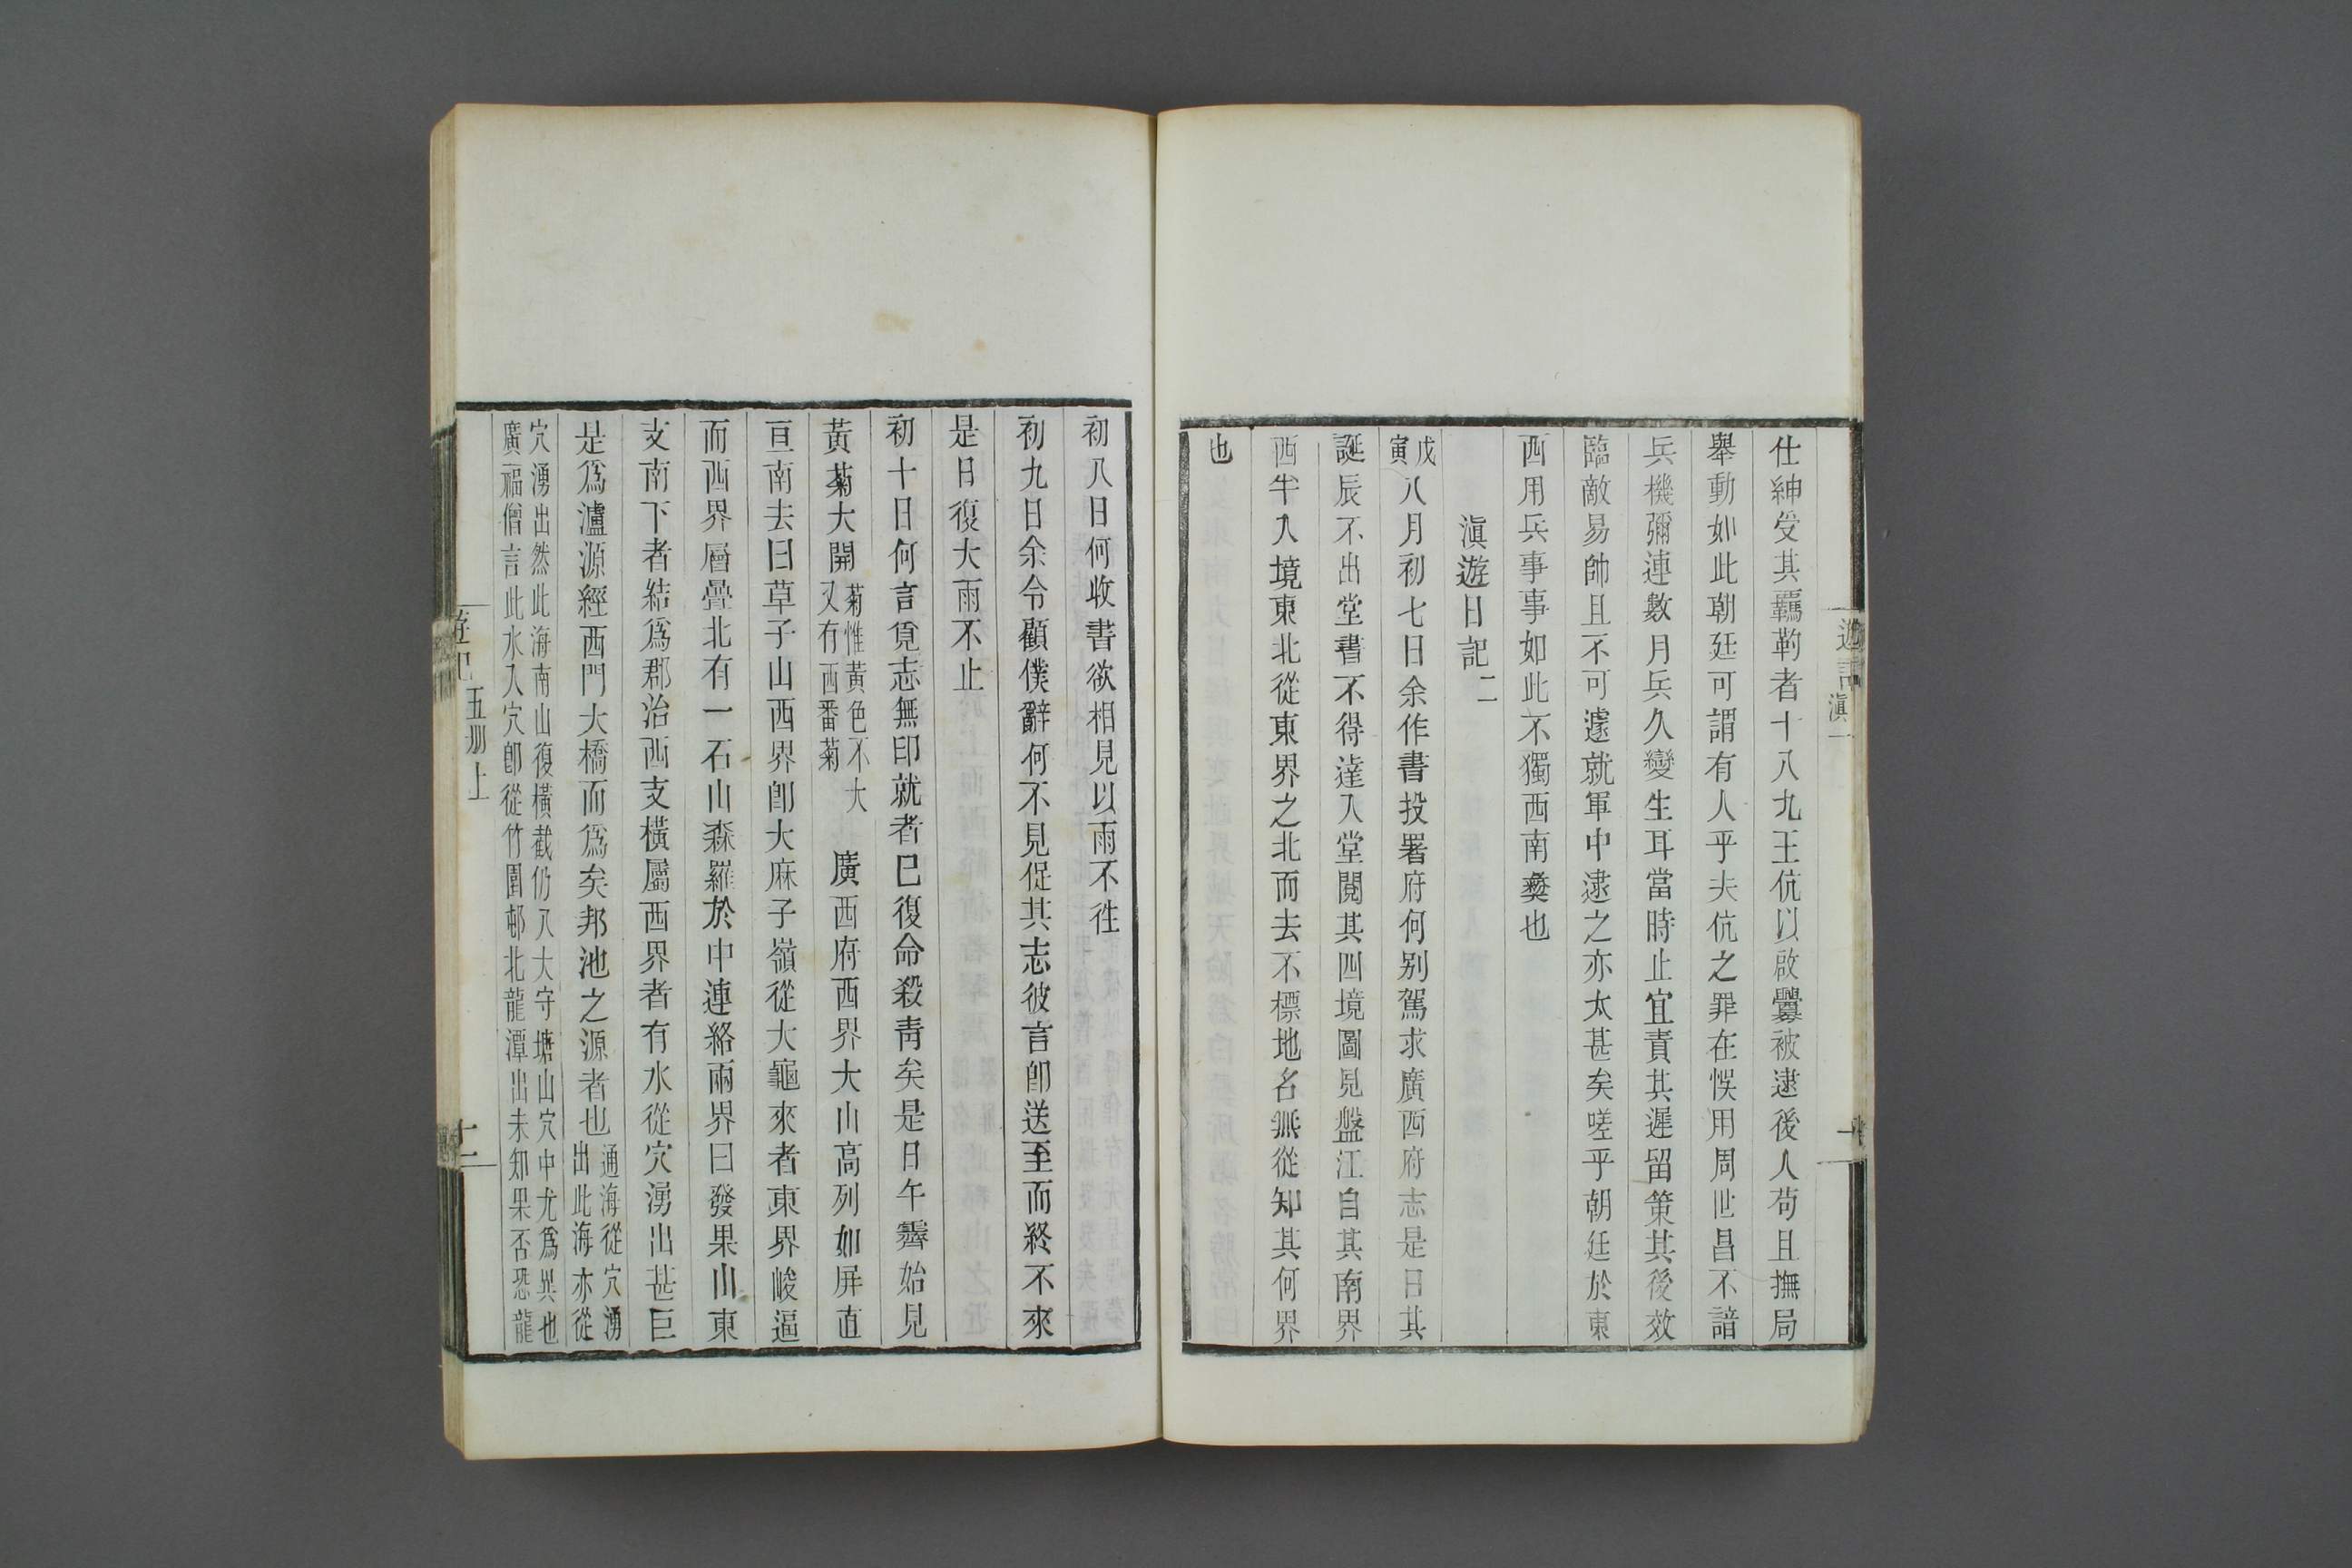 仕紳受其羈靮者十八九王伉以啟釁被逮後人苟且撫局
舉動如此朝廷可謂有人乎夫伉之罪在悞用周世昌不諳
兵機彌連數月兵久變生耳當時止宜責其遲留策其後效
臨敵易帥且不可遽就軍中逮之亦太甚矣嗟乎朝廷於東
西用兵事事如此不獨西南彝也
滇遊日記二
戊寅八月初七日余作書投署府何別駕求廣西府志是日其
誕辰不出堂書不得達入堂閱其四境圖見盤江自其南界
西半入境東北從東界之北而去不標地名無從知其何界
也
遊記
滇一
初八日何收書欲相見以雨不徃
初九日余令顧僕辭何不見促其志彼言卽送至而終不來
是日復大雨不止
初十日何言覓志無印就者已復命殺青矣是日午霽始見
黃菊大開菊惟黃色不大又有西番菊 廣西府西界大山高列如屏直
亘南去曰草子山西界卽大麻子嶺從大龜來者東界峻逼
而西界層疊北有一石山森羅於中連絡兩界曰發果山東
支南下者結爲郡治西支橫屬西界者有水從穴湧出甚巨
是爲瀘源經西門大橋而爲矣邦池之源者也通海從穴湧出此海亦從
穴湧出然此海南山復橫截仍入大守塘山穴中尤爲異也
廣福僧言此水入穴卽從竹園邨北龍潭出未知果否恐龍
遊記
五册上
十二